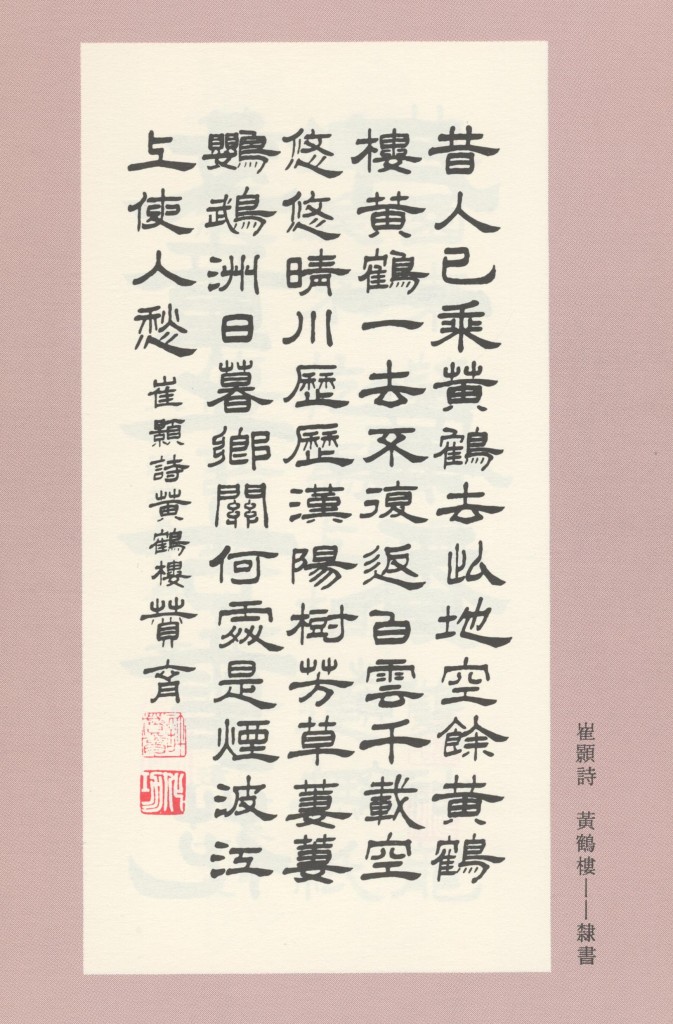 昔人已乘黄鶴去此地空餘黄鶴
樓黄鶴一去不復返白雲千載空
悠悠晴川歷歷漢陽樹芳草萋萋
鸚鵡洲日暮鄉關何處是煙波江
上使人愁 崔顥詩黄鶴樓 蕡育
崔顥詩 黃鶴樓——隸書